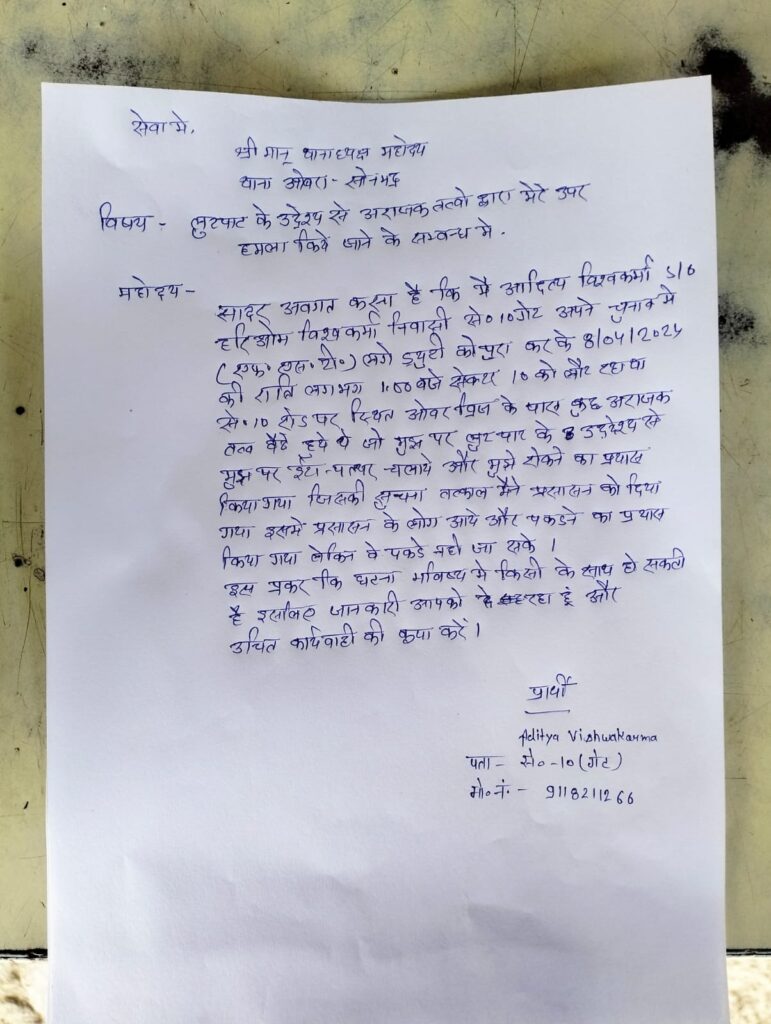 सेवा मे,
श्री मान् थानाध्यक्ष महोदय
थाना ओबरा - सोनभद्र
विषय - लुटपाट के उद्देश्य से अराजक तत्वो द्वारा मेरे उपर
हमला किये जाने के सम्बन्ध मे .
महोदय - सादर अवगत करना है कि मै आदित्य विश्वकर्मा S/O
हरिओम विश्वकर्मा निवासी से० 10 गेट अपने चुनाव मे
(एफ. एस. टी.) लगे ड्युटी को पुरा कर के 8/04/2024
की रात्रि लगभग 1:00 बजे सेक्टर 10 को लौट रहा था
से० 10 रोड पर स्थित ओवर ब्रिज के पास कुछ अराजक
तत्व बैठे हुये थे जो मुझ पर लुटपाट के उद्देश्य से
मुझ पर ईटा-पत्थर चलाये और मुझे रोकने का प्रयास
किया गया जिसकी सुचना तत्काल मैने प्रसासन को दिया
गया इसमें प्रसासन के लोग आये और पकडने का प्रयास
किया गया लेकिन वे पकडे नही जा सके ।
इस प्रकर कि घटना भविष्य मे किसी के साथ हो सकती
है इसलिए जानकारी आपको दे रहा हूं और
उचित कार्यवाही की कृपा करें ।
प्रार्थी
Aditya Vishwakarma
पता - से० -10 (गेट)
मो. नं. - 9118211266